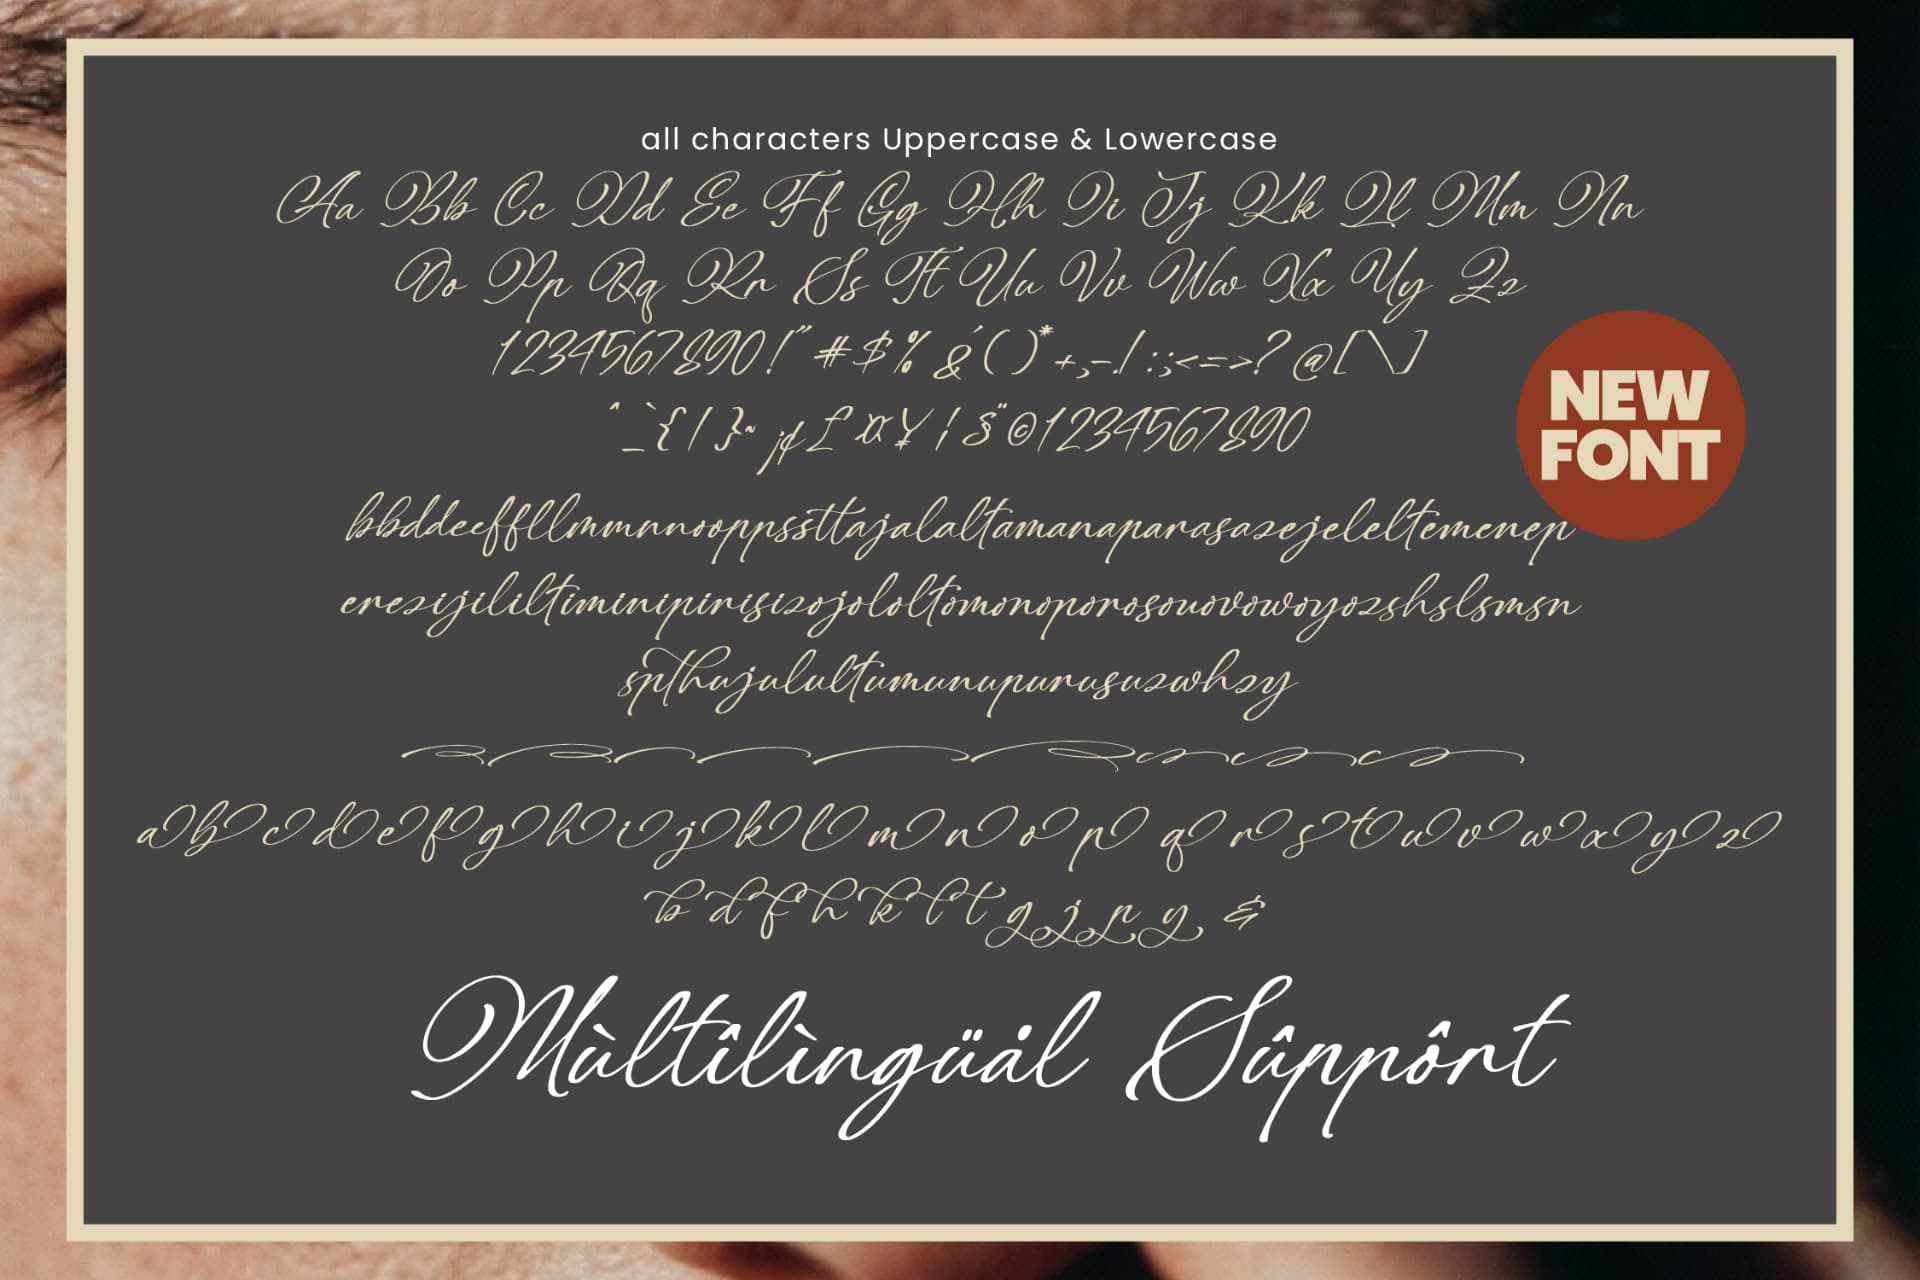 all characters Uppercase & Lowercase
Aa Bb Cc Dd Ee Ff Gg Hh Ii Jj Kk Ll Mm Nn
Oo Pp Qq Rr Ss Tt Uu Vv Ww Xx Yy Zz
1234567890!"#$%&'()*+,-./:;<=>?@[\]
^_`{|}~¡¢£¤¥¦§¨©1234567890
NEW
FONT
bbddeeffllmmnnooppssttajalaltamanaparasazejeleltemenep
erezijililtiminipirisizojololtomonoporosouovowoyozshslsmsn
spthujulultumunupurusuzwhzy
a b c d e f g h i j k l m n o p q r s t u v w x y z
b d f h k l t g j p y &
Mùltîlìngüål Sûppôrt